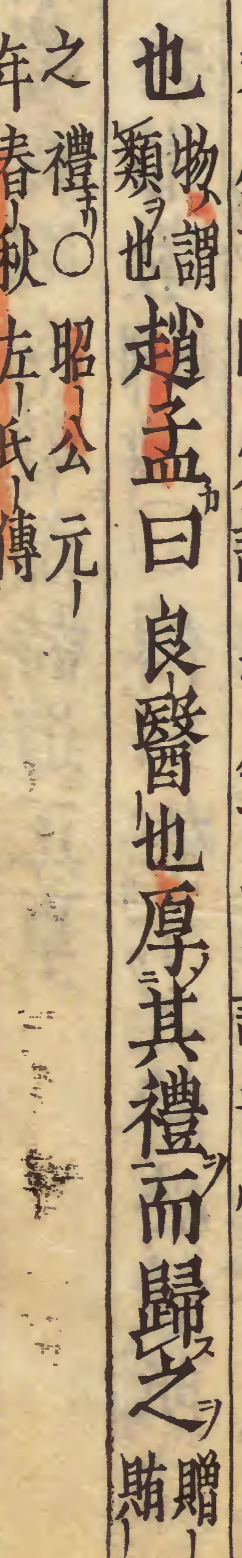 也物謂類也趙孟曰良醫也厚其禮而歸之贈賄
之禮〇昭公元
年春秋左氏傳